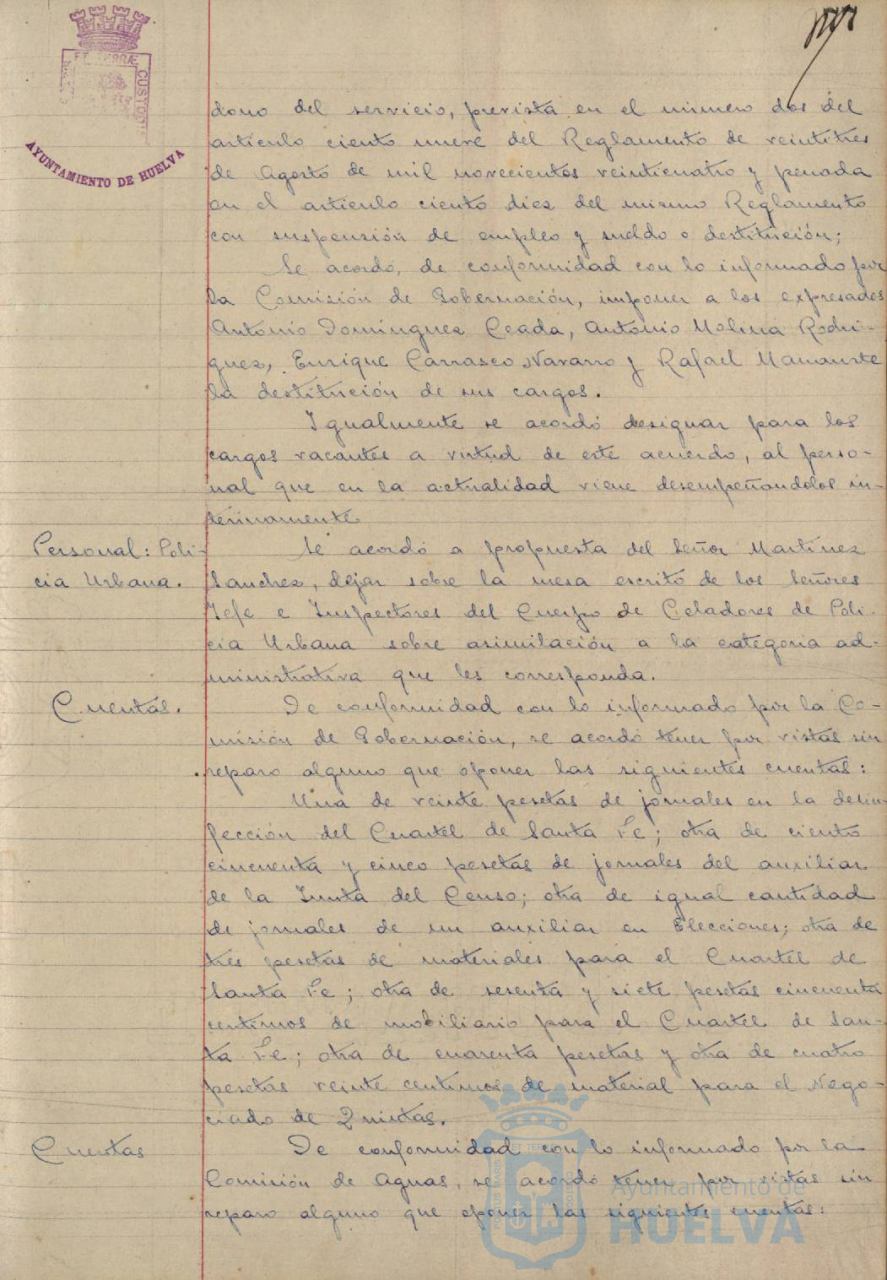 AYUNTAMIENTO DE HUELVA
dono del servicio, prevista en el número dos del
artículo ciento nueve del Reglamento de veintitres
de Agosto de mil novecientos veinticuatro y penada
en el artículo ciento diez del mismo Reglamento
con suspensión de empleo y sueldo o destitución;
Se acordó, de conformidad con lo informado por
la Comisión de Gobernación, imponer a los expresados
Antonio Domínguez Ceada, Antonio Molina Rodrí-
guez, Enrique Carrasco Navarro y Rafael
la destitución de sus cargos.
Igualmente se acordó designar para los
cargos vacantes a virtud de este acuerdo, al perso-
nal que en la actualidad viene desempeñandolos in-
terinamente
Personal: Poli-
cia Urbana.
Se acordó a propuesta del Señor Martínez
Sanchez, dejar sobre la mesa escrito de los Señores
Jefe e Inspectores del Cuerpo de Celadores de Poli-
cia Urbana sobre asimilación a la categoria ad-
ministrativa que les corresponda.
Cuentas.
De conformidad con lo informado por la Co-
misión de Gobernación, se acordó tener por vistas sin
reparo alguno que oponer las siguientes cuentas:
Una de veinte pesetas de jornales en la desin-
fección del Cuartel de Santa Fe; otra de ciento
cincuenta y cinco pesetas de jornales del auxiliar
de la Junta del Censo; otra de igual cantidad
de jornales de un auxiliar en Elecciones; otra de
tres pesetas de materiales para el Cuartel de
Santa Fe; otra de sesenta y siete pesetas cincuenta
centimos de mobiliario para el Cuartel de San-
ta Fe; otra de cuarenta pesetas y otra de cuatro
pesetas veinte centimos de material para el Nego-
ciado de Quintas.
Cuentas
De conformidad con lo informado por la
Comisión de Aguas, se acordó tener por vistas sin
reparo alguno que oponer las siguientes cuentas:
Ayuntamiento de
HUELVA